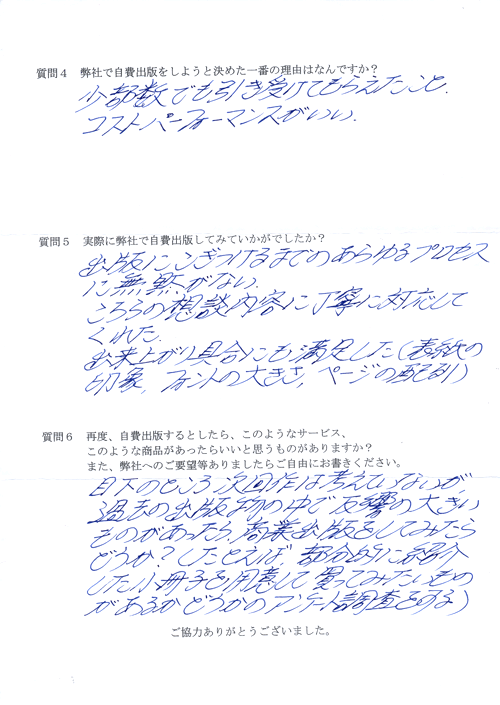 質問４ 弊社で自費出版をしようと決めた一番の理由はなんですか？
少部数でも引き受けてもらえたこと.
コストパーフォーマンスがいい.
質問５ 実際に弊社で自費出版してみていかがでしたか？
出版にこぎつけるまでのあらゆるプロセス
に無駄がない.
こちらの相談内容に丁寧に対応して
くれた.
出来上がり具合にも満足した（表紙の
印象, フォントの大きさ, ページの配列）
質問６ 再度、自費出版するとしたら、このようなサービス、
このような商品があったらいいと思うものがありますか？
また、弊社へのご要望等ありましたらご自由にお書きください。
目下のところ次回作は考えていないが,
過去の出版物の中で反響の大きい
ものがあったら, 商業出版をしてみたら
どうか？（たとえば, 部分的に紹介
した小冊子を用意して買ってみたいもの
があるかどうかのアンケート調査をする）
ご協力ありがとうございました。